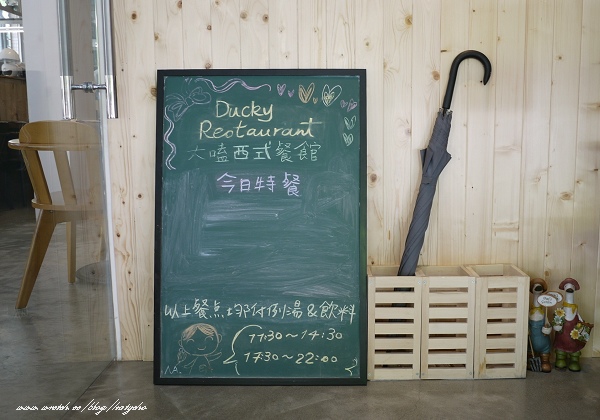 Ducky
Restaurant
大嗑西式餐館
今日特餐
以上餐点均附例湯&飲料
11:30～14:30
17:30～22:00